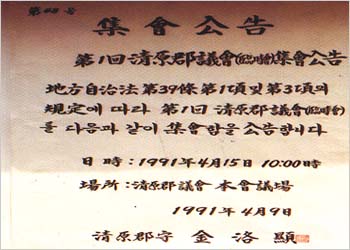 第68号
集會公告
第1回 淸原郡議會(臨時會)集會公告
地方自治法 第39條 第1項 및 第3項의
規定에 따라 第1回 淸原郡議會(臨時會)
를 다음과 같이 集會함을 公告합니다
日 時 : 1991年 4月 15日 10:00時
場所 : 淸原郡議會 本會議場
1991年 4月 9日
淸原郡守 金洛顯